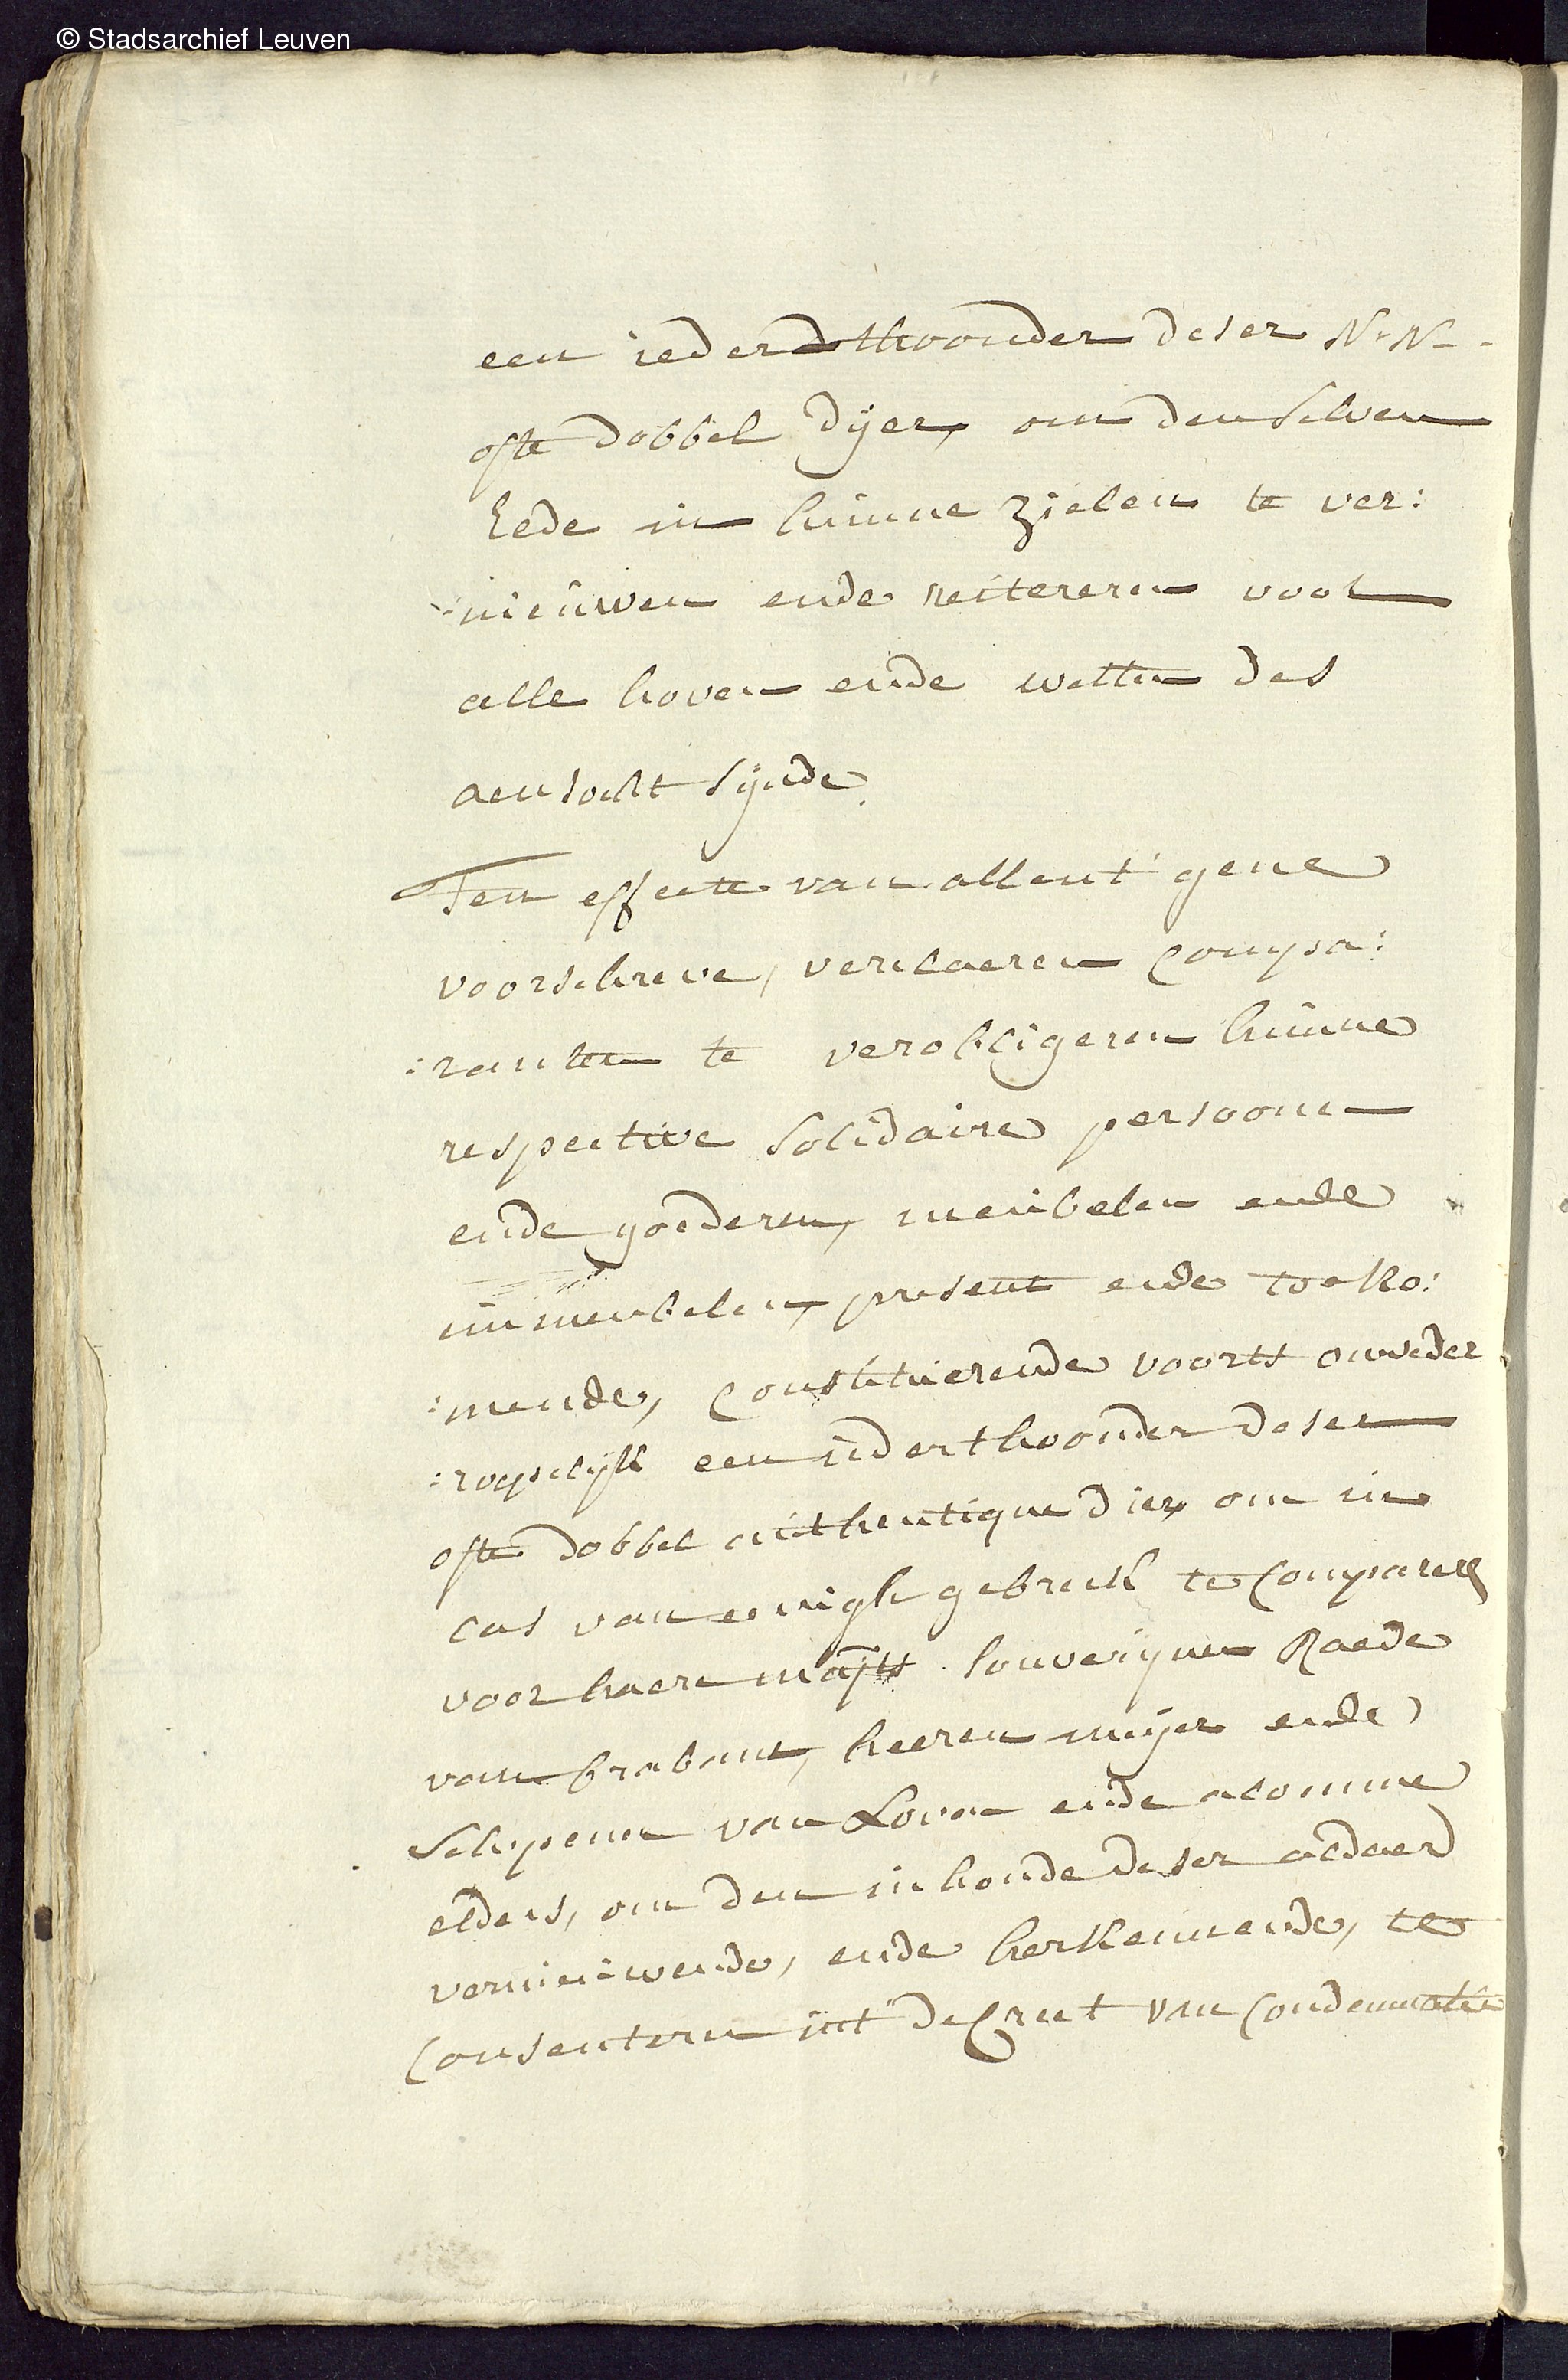 © Stadsarchief Leuven
een ieder thoonder deser N: N:
ofte dobbel dijer, om den selven
Eede in hunne zielen te ver:
:nieuwen ende reitereren voor
alle hoven ende wetten des
aensocht sijnde.
Ten effecte van allent' gene
voorschreve, verclaeren compa:
:ranten te verobligeren hunne
respective solidaire persoonen
ende goederen, meubelen ende
immeubelen, present ende toeko:
:mende, constituerende voorts onweder
:roepelijk een ider thoonder deser
ofte dobbel authentique dier om in
cas van eenigh gebreck te compareren
voor haere majts souverijnen Raede
van brabant, heeren meijer ende
schepenen van Loven ende alomme
elders, om den inhoude deser aldaer
vernieuwende, ende herkennende, te
Consenteren int' decreet van Condemnatie